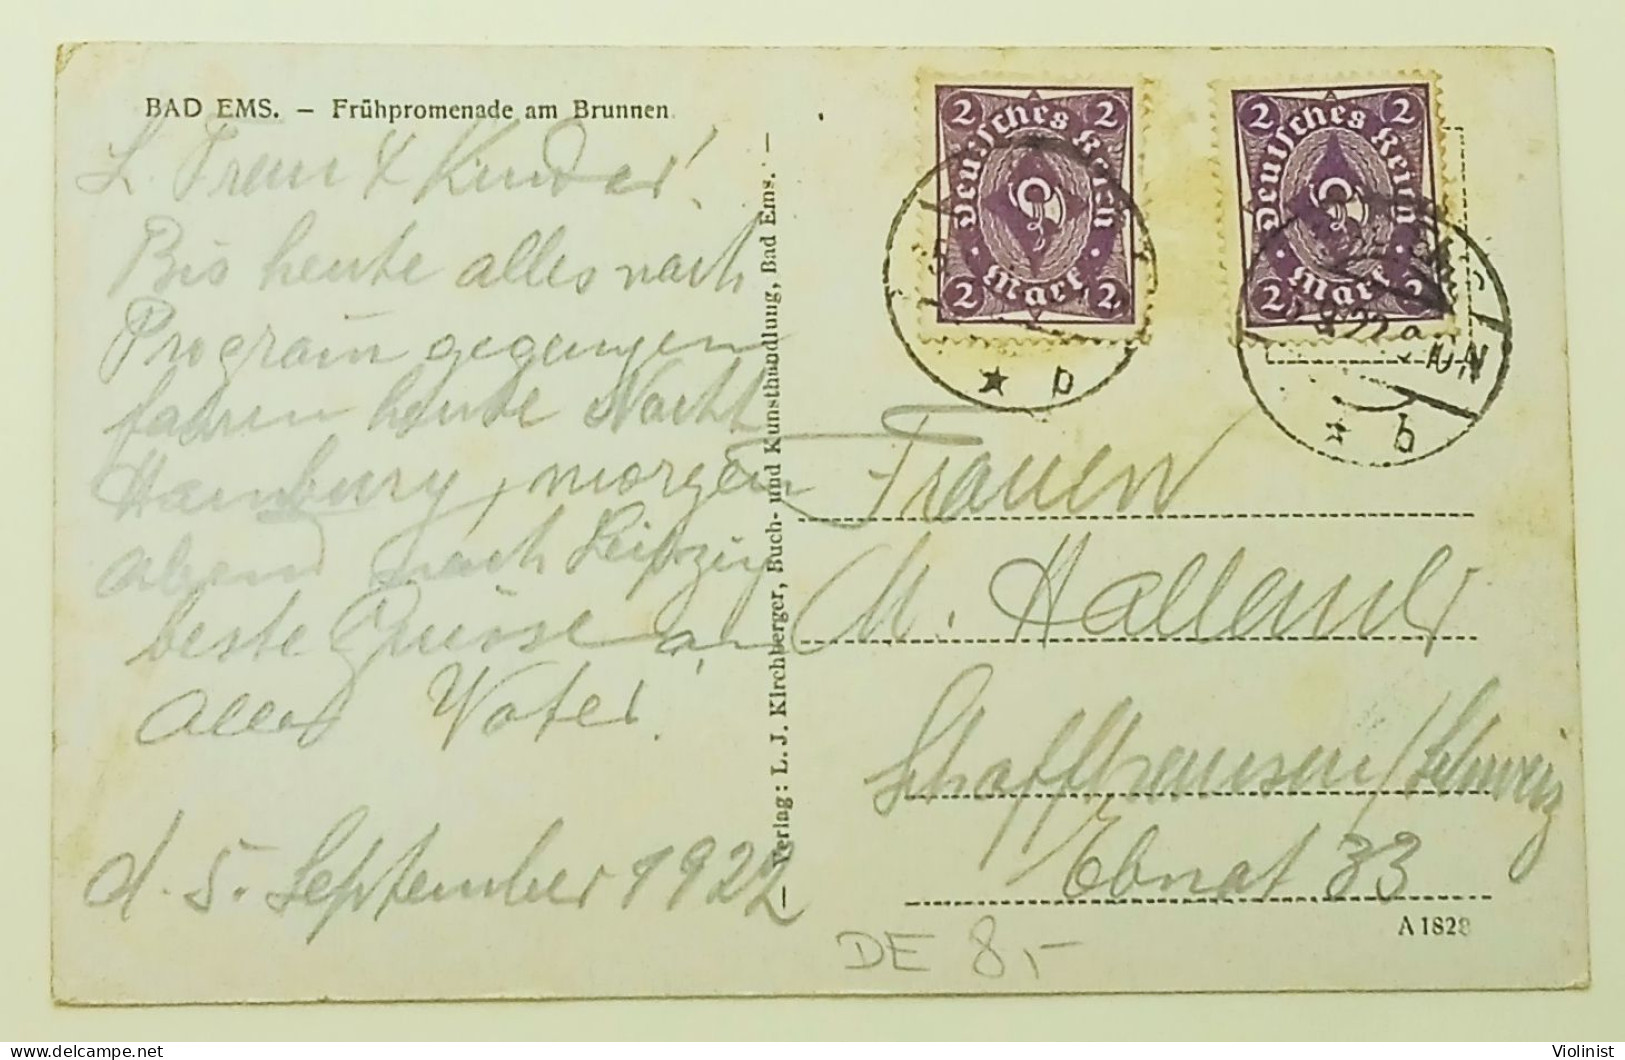 BAD EMS. – Frühpromenade am Brunnen
L. Frau & Kinder!
Bis heute alles nach
Program gegangen
fahren heute Nacht
Hamburg, morgen
abend nach Leipzig
beste Grüsse an
alles Vater!
d. 5. September 1922
– Verlag: L. J. Kirchberger, Buch- und Kunsthandlung, Bad Ems. –
2 2
Deutsches Reich
2 Mark 2
2 2
Deutsches Reich
2 Mark 2
8 22
* b
* b
Frauen
M. Hallauer
Schaffhausen / Schweiz
Ebnat 33
A 1828
DE 8,-
delcampe.net
Violinist